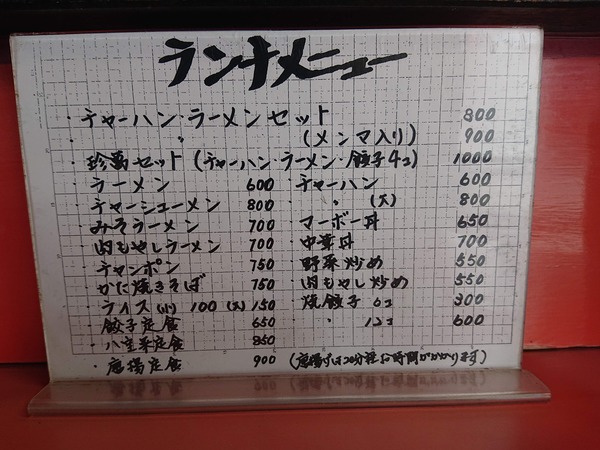 ランチメニュー
・チャーハン・ラーメンセット 800
・ 〃 (メンマ入り) 900
・珍萬セット(チャーハン・ラーメン・餃子4コ) 1000
・ラーメン 600 ・チャーハン 600
・チャーシューメン 800 ・ 〃 (大) 800
・みそラーメン 700 ・マーボー丼 650
・肉もやしラーメン 700 ・中華丼 700
・チャンポン 750 ・野菜炒め 550
・かに焼きそば 750 ・肉もやし炒め 550
・ライス(小) 100 (大) 150 ・焼餃子 6コ 300
・餃子定食 650 ・ 〃 12コ 600
・八宝菜定食 850
・唐揚定食 900 (唐揚げは20分程お時間がかかります)